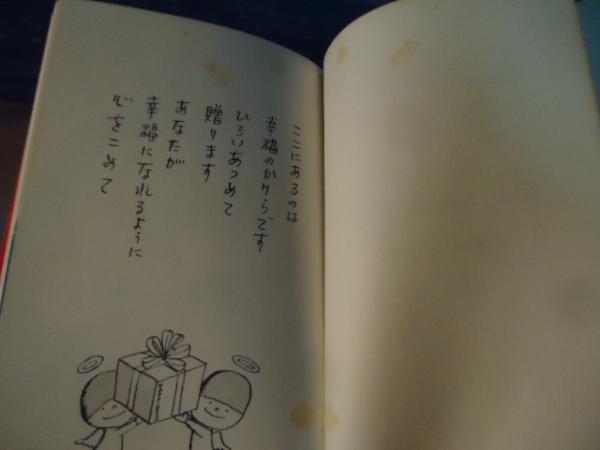 ここにあるのは
幸福のかけらです
ひろいあつめて
贈ります
あなたが
幸福になれるように
心をこめて